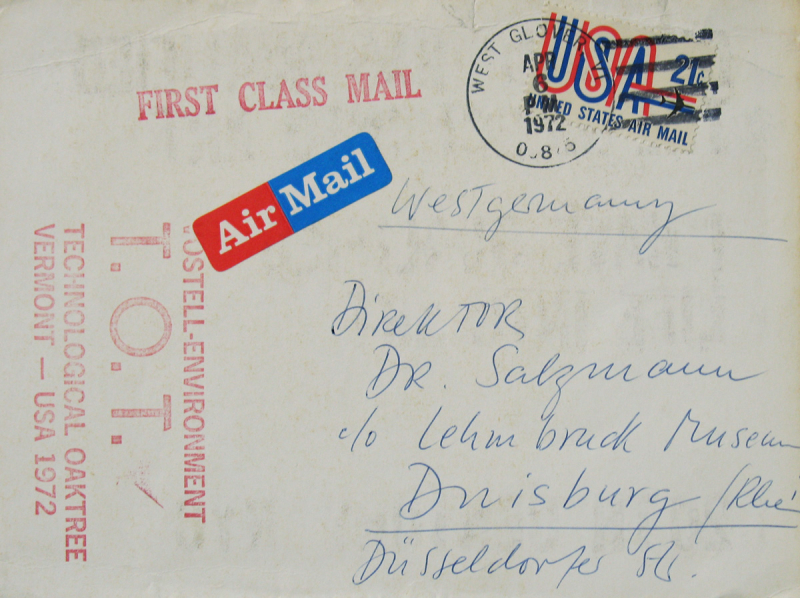 FIRST CLASS MAIL
WEST GLOVER VT
APR
6
PM
1972
USA 21c
UNITED STATES AIR MAIL
Air Mail
Westgermany
Direktor
Dr. Salzmann
c/o Lehmbruck Museum
Duisburg /Rhein
Düsseldorfer Str.
VOSTELL-ENVIRONMENT
T.O.T.
TECHNOLOGICAL OAKTREE
VERMONT — USA 1972